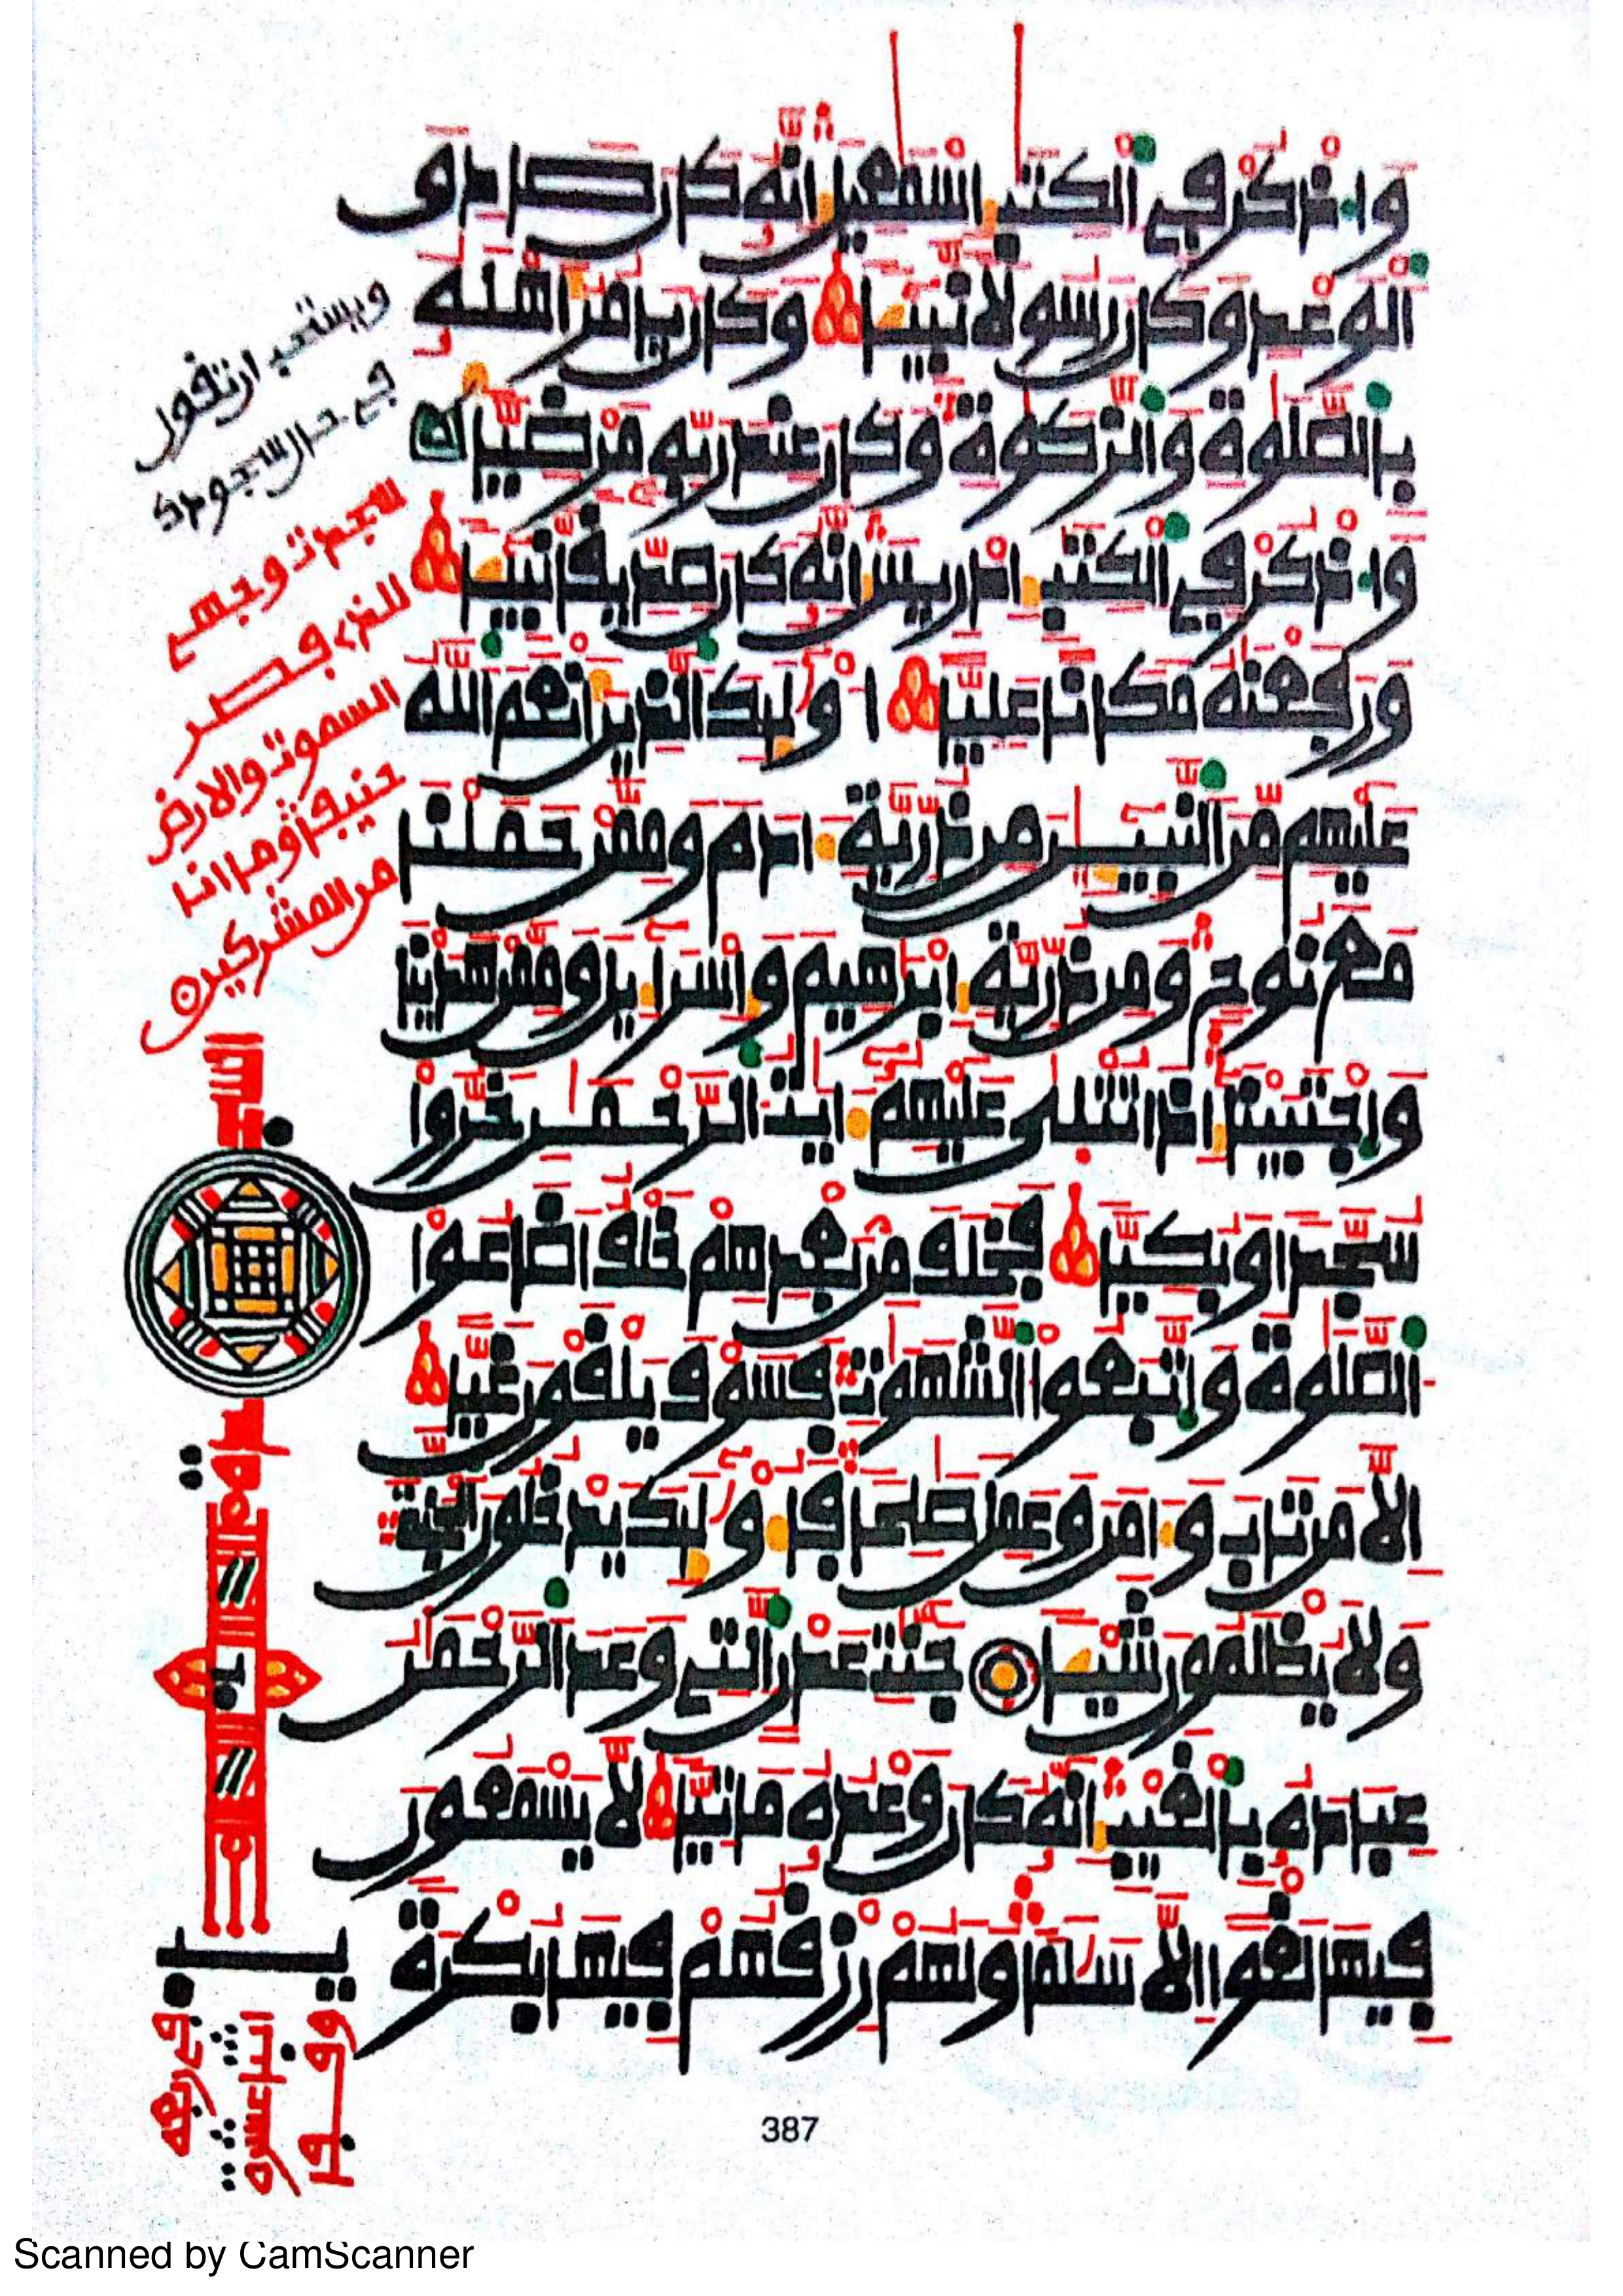 واذكر في الكتب اسمعيل انه كان صادق
الوعد وكان رسولا نبيئا وكان يامر اهله
بالصلوة والزكوة وكان عند ربه مرضيا
واذكر في الكتب ادريس انه كان صديقا نبيئا
ورفعنه مكانا عليا اولئك الذين انعم الله
عليهم من النبيئن من ذرية ادم وممن حملنا
مع نوح ومن ذرية ابرهيم واسراءيل وممن هدينا
واجتبينا اذا تتلى عليهم ايت الرحمن خروا
سجدا وبكيا فخلف من بعدهم خلف اضاعوا
الصلوة واتبعوا الشهوت فسوف يلقون غيا
الا من تاب وامن وعمل صلحا فاولئك يدخلون الجنة
ولا يظلمون شيئا جنت عدن التي وعد الرحمن
عباده بالغيب انه كان وعده ماتيا لا يسمعون
فيها لغوا الا سلما ولهم رزقهم فيها بكرة
ويستحب ان تقول
في حال سجودك
سجدت وجهي
للذي فطر
السموت والارض
حنيفا وما انا
من المشركين
387
Scanned by CamScanner